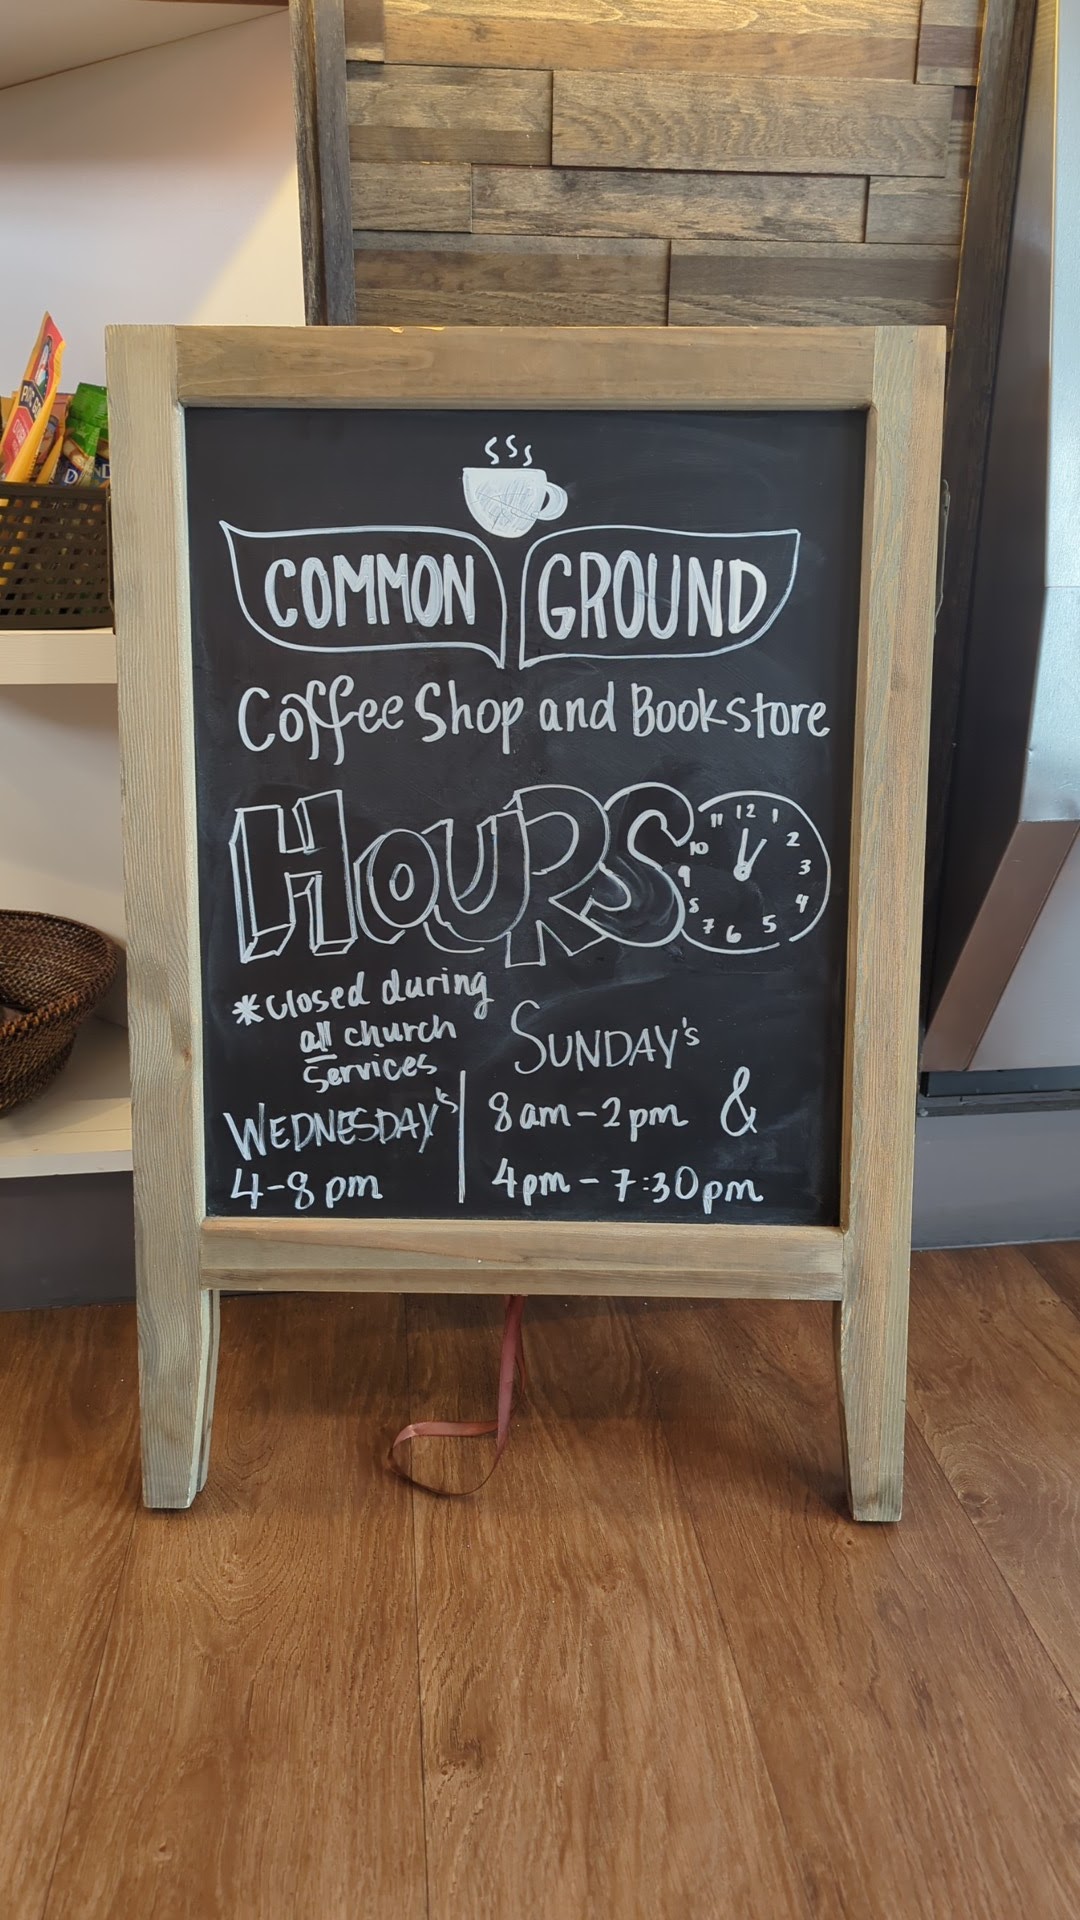 COMMON GROUND
Coffee Shop and Bookstore
HOURS
11 12 1
10 2
9 3
8 4
7 6 5
*closed during
all church
services
WEDNESDAY's
4-8 pm
SUNDAY's
8 am - 2 pm &
4pm - 7:30pm